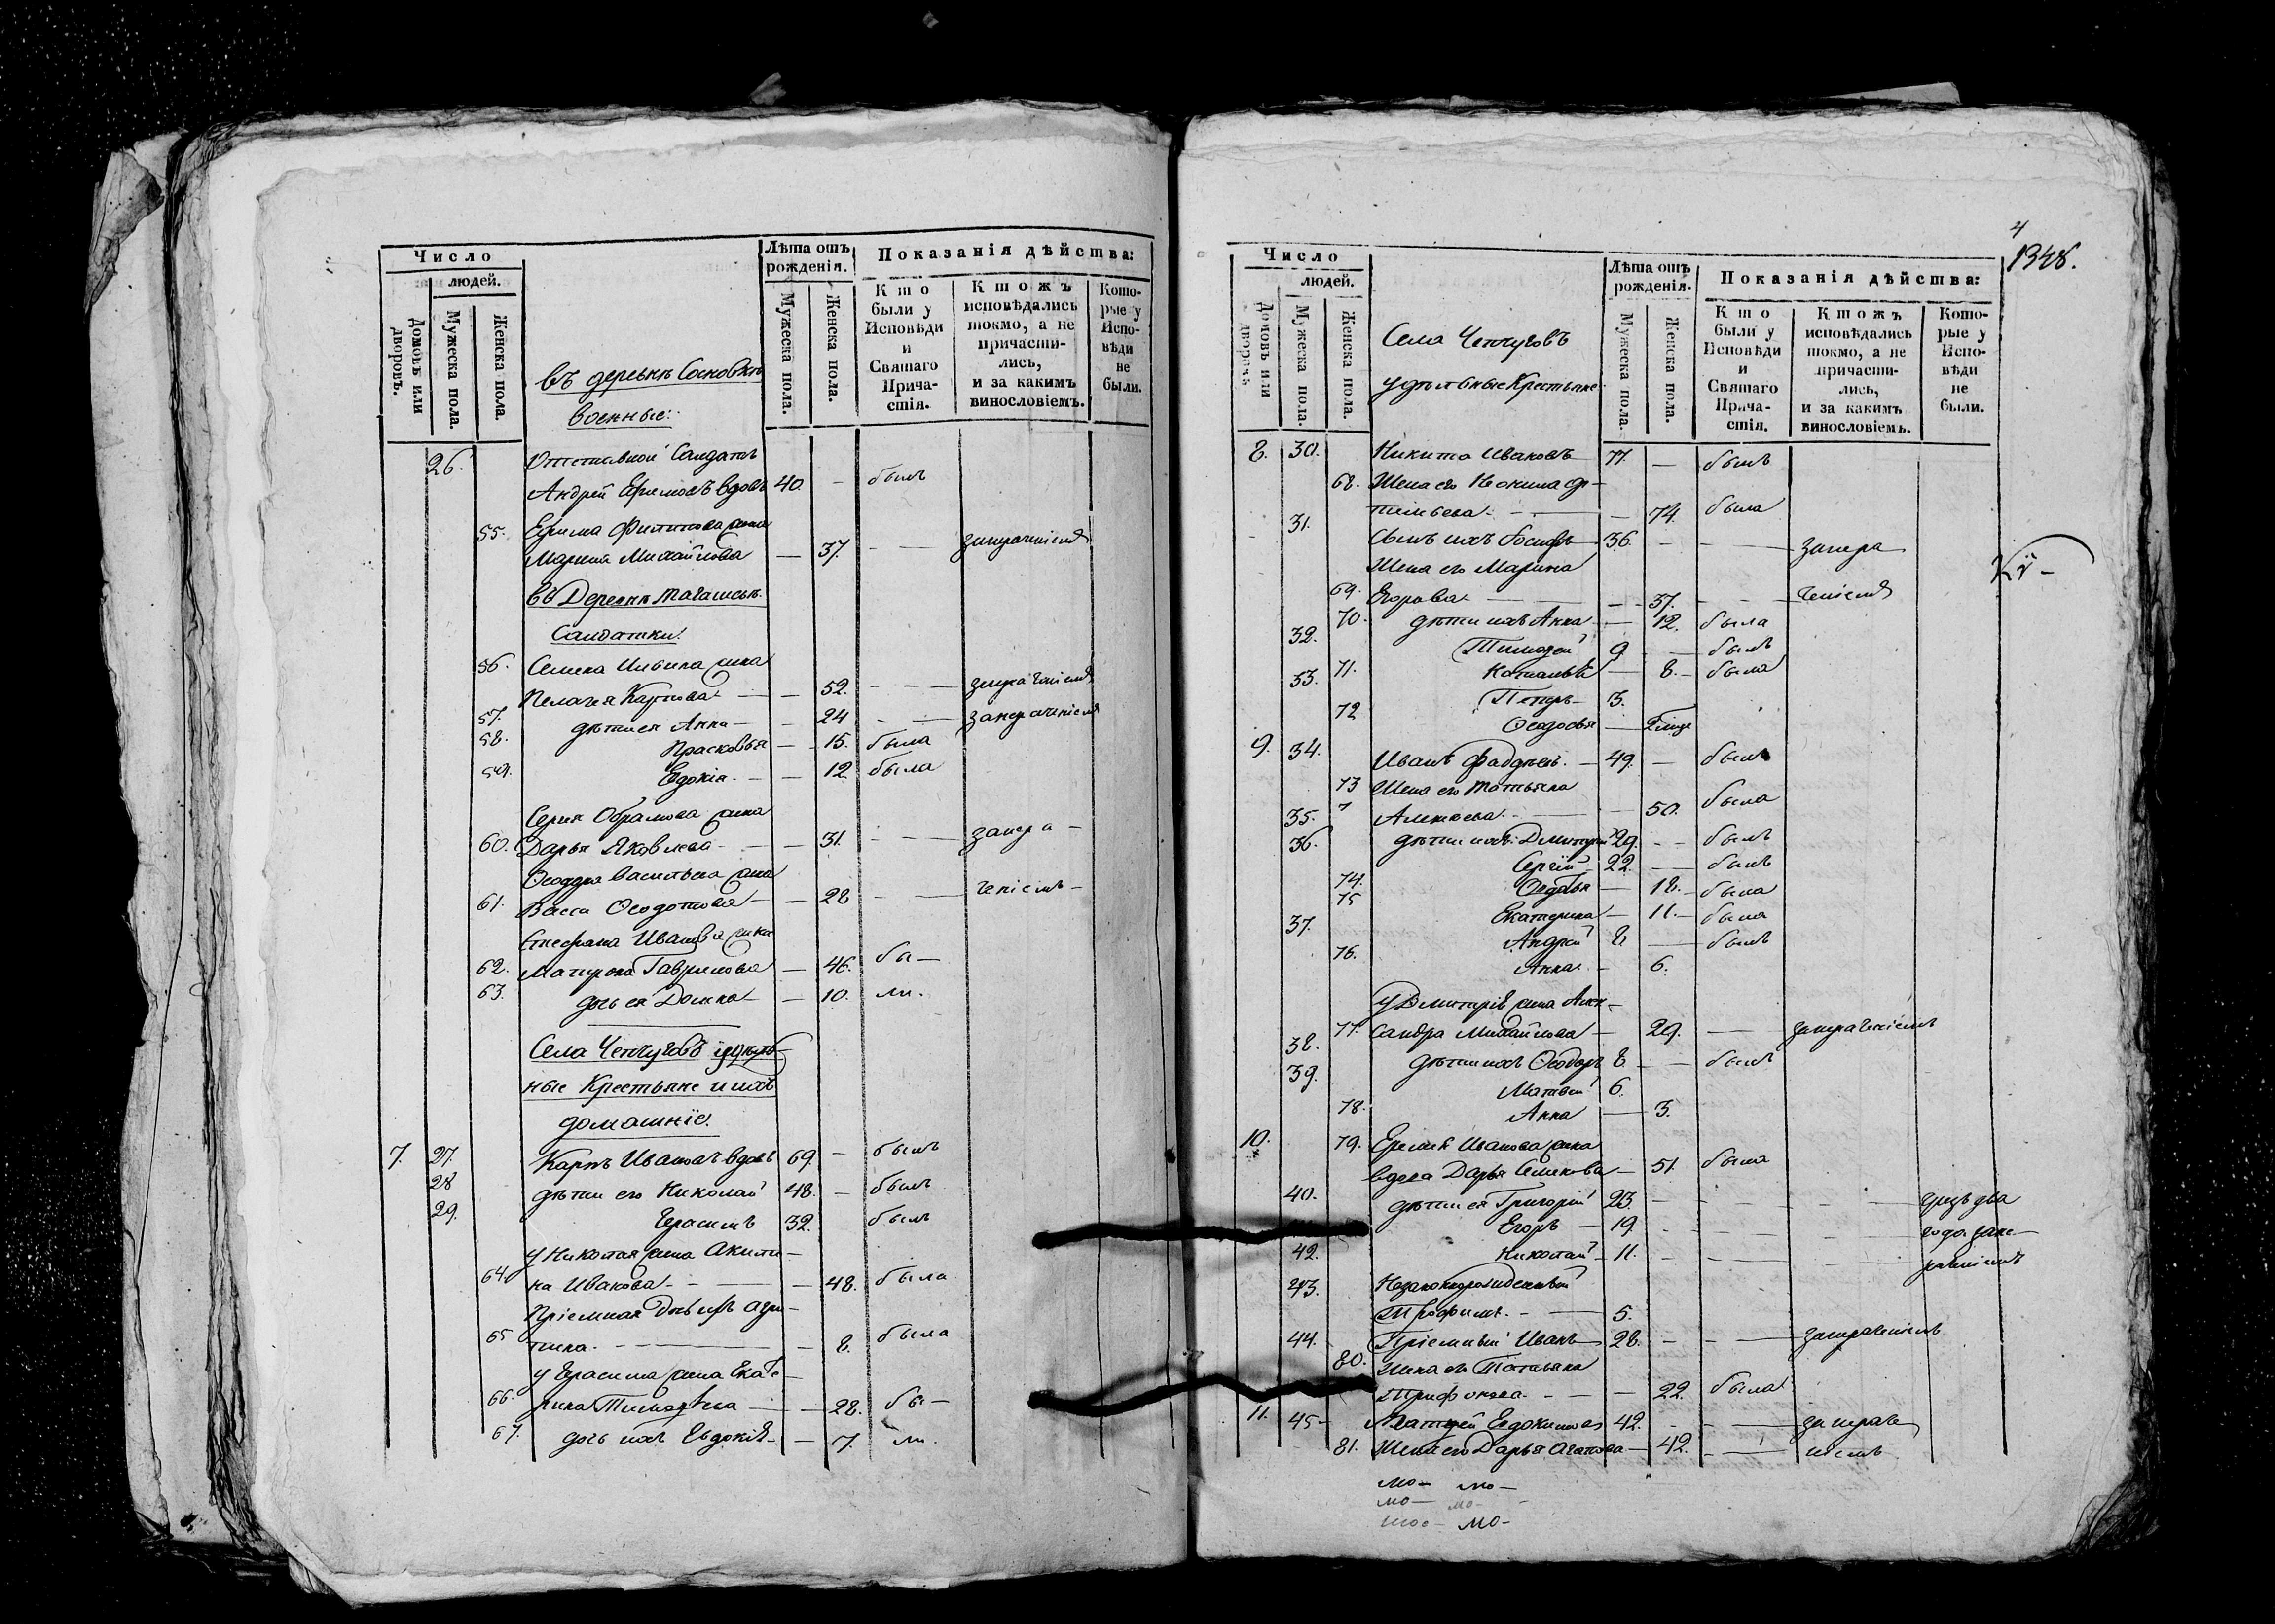 Число
людей.
Домовъ или дворовъ.
Мужеска пола.
Женска пола.
въ деревнѣ Сосновкѣ
военные:
Лѣта отъ рожденія.
Мужеска пола.
Женска пола.
Показанія дѣйства:
Кто были у Исповѣди и Святаго Причастія.
Ктожъ исповѣдались токмо, а не причастились, и за какимъ винословіемъ.
Которые у Исповѣди не были.
26. Отставной Салдатъ
Андрей Ефимовъ вдовъ 40. — былъ
55. Ефима Филипова жена
Марина Михайлова — 37. — —
въ Деревнѣ
Салдатки:
56. Семена Ильина жена
Пелагея Карпова — — 52. — —
57. дѣти ея Анна — — 24 — —
58. Прасковья — 15. была
59. Евдокія. — — 12 была
Сергея Абрамова жена
60. Дарья Яковлева — — 31. — —
Ѳеодора Васильева жена
61. Васса Ѳеодотова — — 28 — —
Стефана Иванова жена
62. Матрона Гаврилова — 46. бы—
63. дочь ея Домна — — 10. ли.
Села Чепчуговъ удѣль-
ные Крестьяне и ихъ
домашніе.
7. 27. Карпъ Ивановъ вдовъ 69. — былъ
28 дѣти его Николай 48. — былъ
29. Герасимъ 32. былъ
у Николая жена Акили-
64. на Иванова — — — 48. была
Пріемная дочь ихъ Агри-
65 пина. — — — 8. была
у Герасима жена Екате-
66. рина Тимоѳеева — — 28. бы—
67. дочь ихъ Евдокія — — 7. ли.
4
1348.
Число
людей.
Домовъ или дворовъ.
Мужеска пола.
Женска пола.
Села Чепчуговъ
удѣльные Крестьяне
Лѣта отъ рожденія.
Мужеска пола.
Женска пола.
Показанія дѣйства:
Кто были у Исповѣди и Святаго Причастія.
Ктожъ исповѣдались токмо, а не причастились, и за какимъ винословіемъ.
Которые у Исповѣди не были.
8. 30. Никита Ивановъ 77. — былъ
68. Жена его Неонила
— 74. была
31. Сынъ ихъ Іосифъ — 36. — —
Жена его Марина
69. Егорова — — — 37. — —
70. дѣти ихъ Анна — 12. была
32. Тимоѳей 9 — былъ
71. Наталья — 8. — была
33. Петръ — 3.
72 Ѳеодосья —
9. 34. Иванъ Фадѣевъ. — 49. — былъ
73 Жена его Татьяна
Алексеева. — — 50. была
35. дѣти ихъ: Дмитрій 29. — — былъ
36. Сергій 22. — былъ
74. — 18. — была
75 Екатерина — 11. — была
37. Андрей 8 — былъ
76. Анна. — 6.
у Дмитрія жена Алек-
77. сандра Михайлова — 29. —
38. дѣти ихъ Ѳеодоръ 8. — былъ
39. Матвей 6.
78. Анна — 3.
10. 79. Иванова жена
вдова Дарья Семенова — 51. была
40. дѣти ея Григорій 23. — — — чрезъ два
Егоръ — 19. — — — года
42. Николай — 11. — — —
43. Незаконнорожденный
Трофимъ. — — 5.
44. Пріемный Иванъ — 28. — —
80. Жена его Татьяна
Трифонова. — — — 22. была
11. 45 — Матвей Евдокимовъ 42. — —
81. Жена его Дарья Агапова — 42. — —
мо — мо —
мо — мо —
мо —